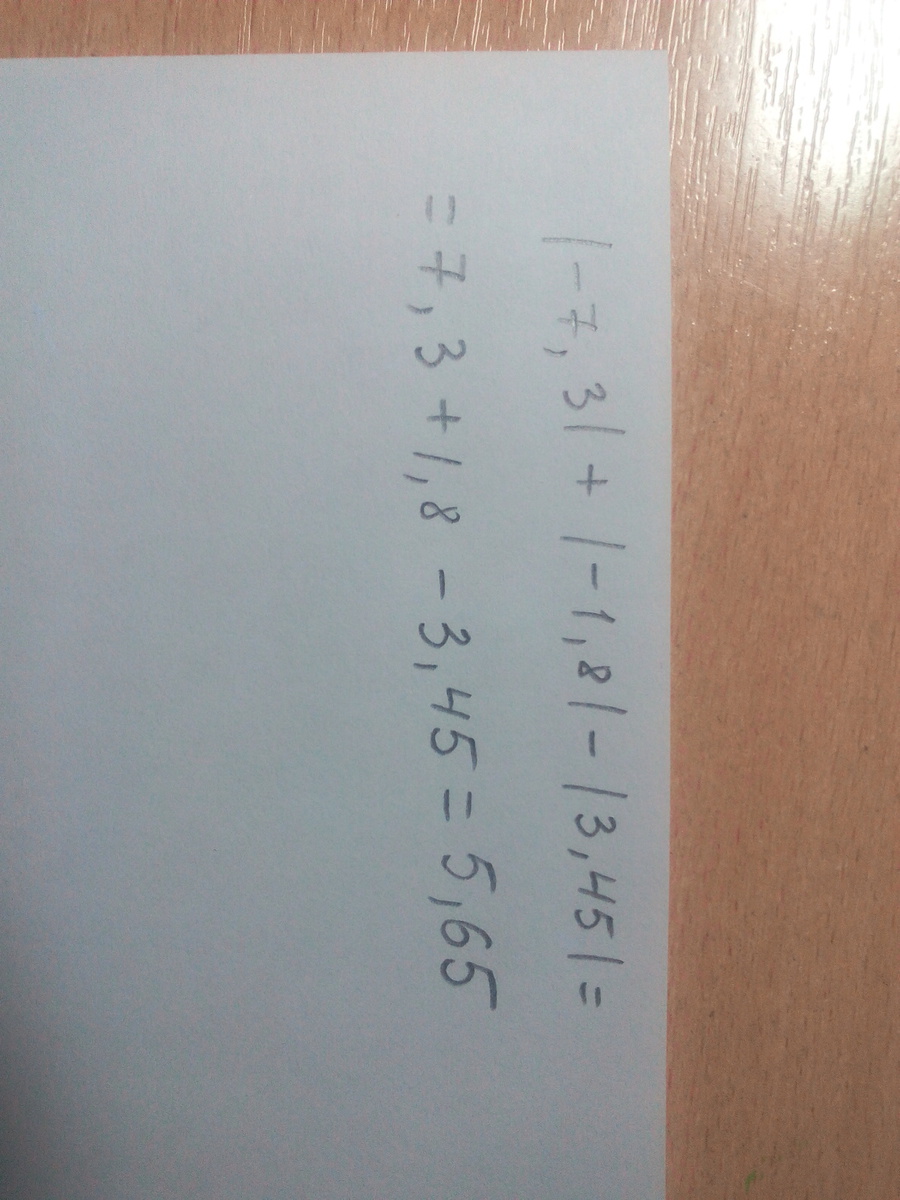 |-7,3|+|-1,8|-|3,45|=
=7,3+1,8-3,45=5,65